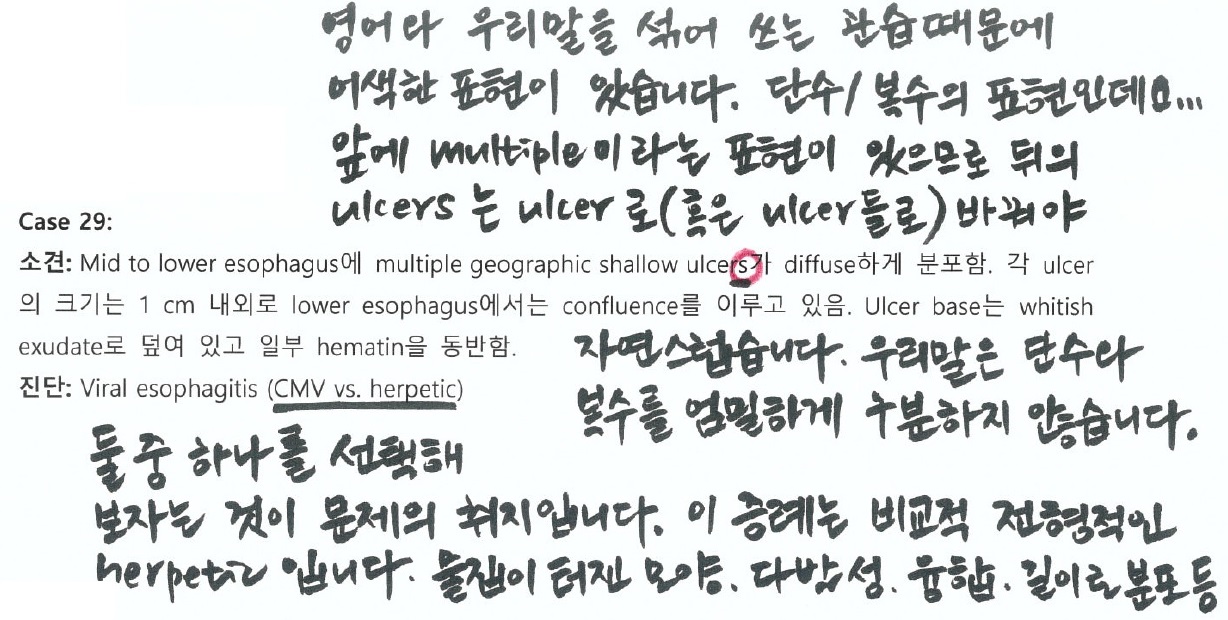 영어와 우리말을 섞어 쓰는 관습때문에
어색한 표현이 있습니다. 단수/복수의 표현인데요...
앞에 multiple이라는 표현이 있으므로 뒤의
ulcers는 ulcer로(혹은 ulcer들로) 바꿔야
Case 29:
소견: Mid to lower esophagus에 multiple geographic shallow ulcers가 diffuse하게 분포함. 각 ulcer
의 크기는 1 cm 내외로 lower esophagus에서는 confluence를 이루고 있음. Ulcer base는 whitish
exudate로 덮여 있고 일부 hematin을 동반함.
자연스럽습니다. 우리말은 단수와
진단: Viral esophagitis (CMV vs. herpetic)
복수를 엄밀하게 구분하지 않습니다.
둘 중 하나를 선택해
보자는 것이 문제의 취지입니다. 이 증례는 비교적 전형적인
herpetic 입니다. 물집이 터진 모양. 다발성. 융합. 길이로 분포 등